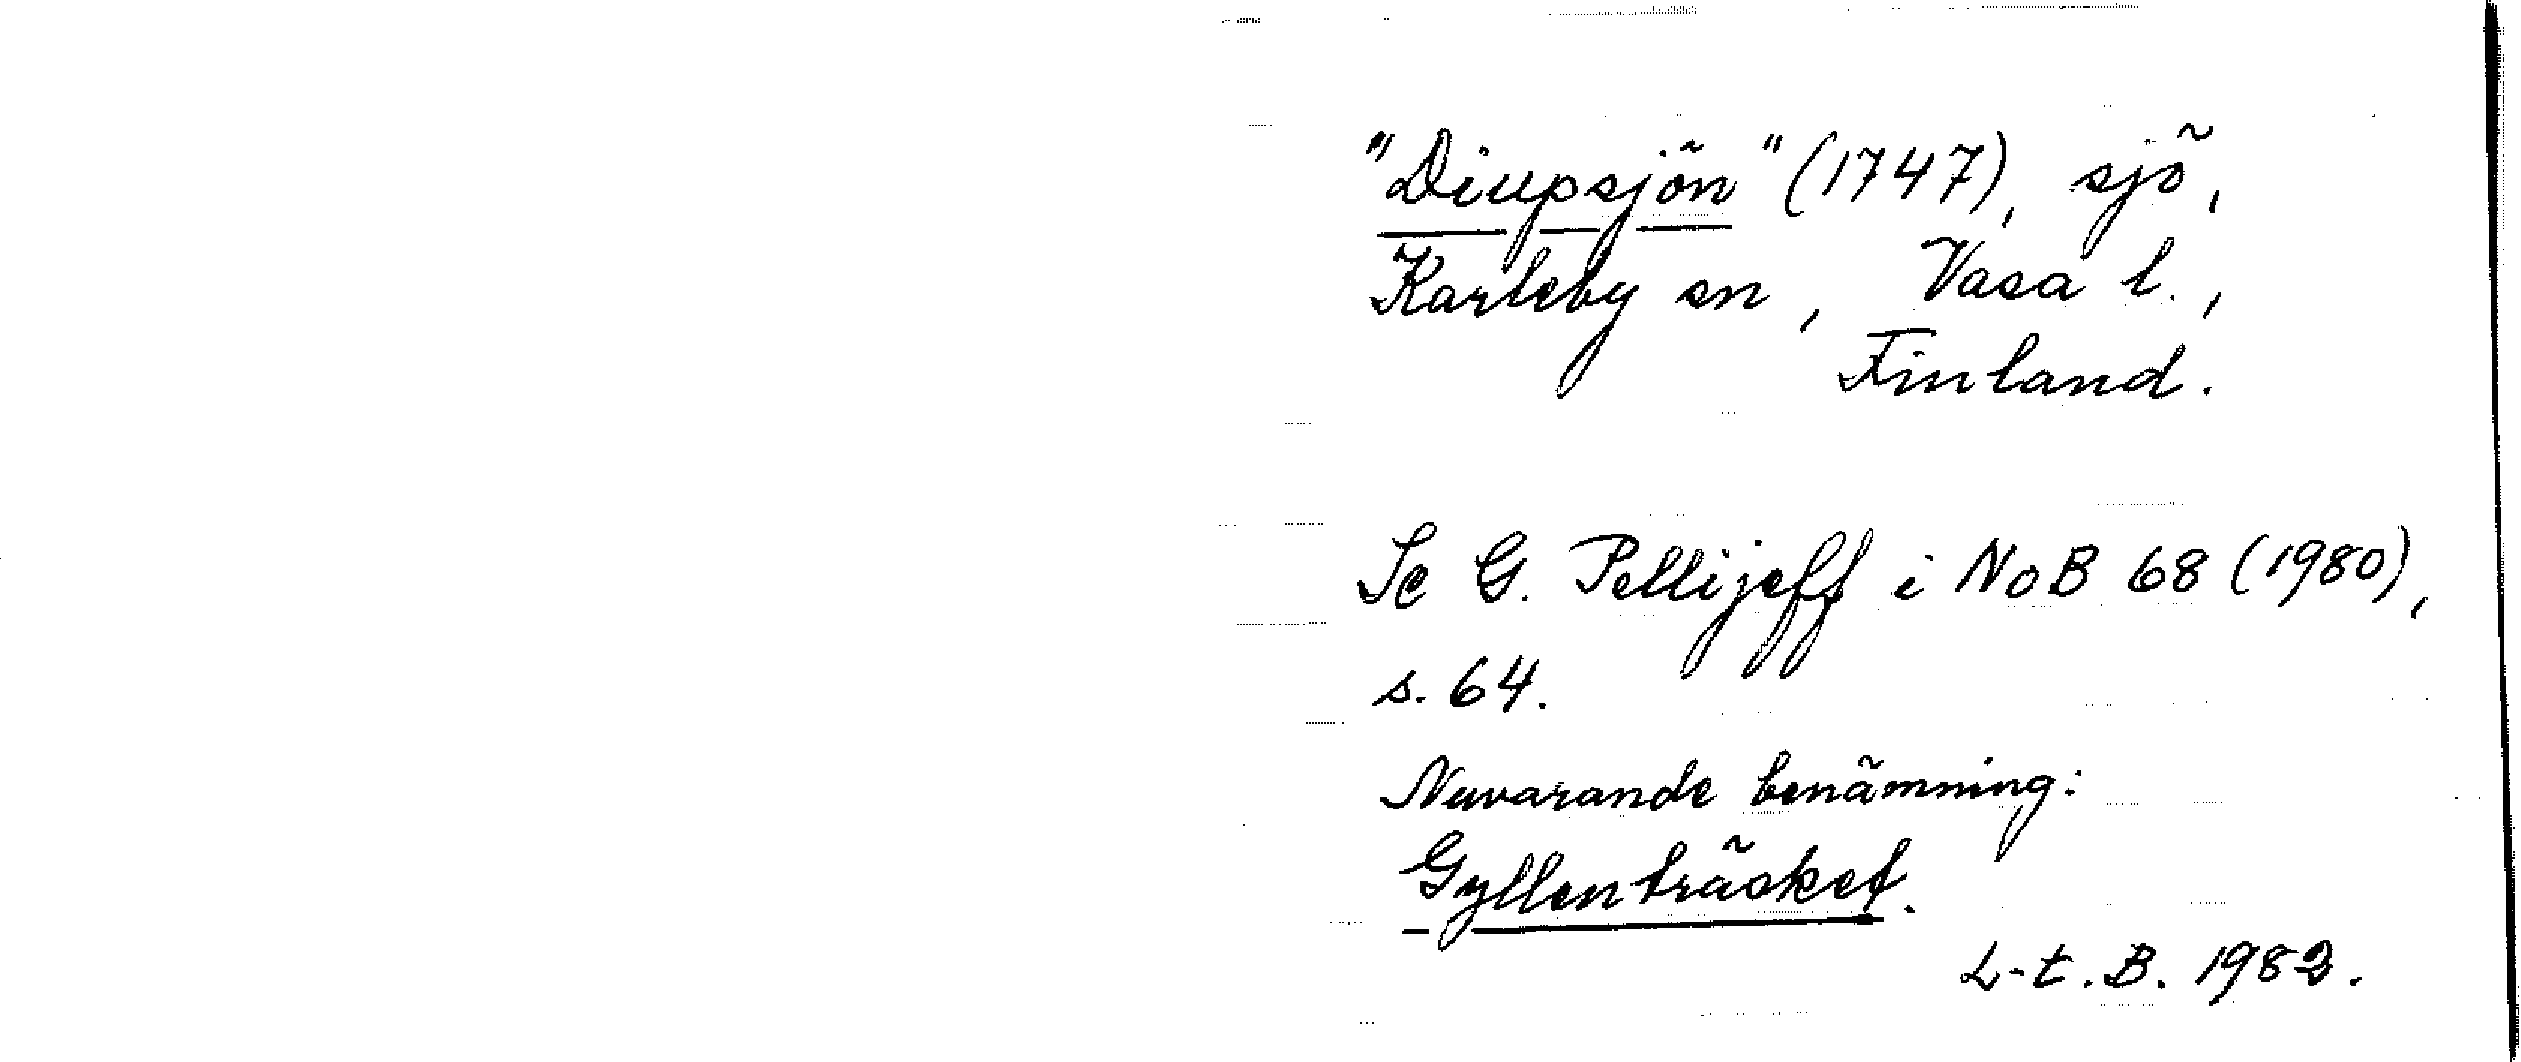 "Diupsjön" (1747), sjö,
Karleby sn, Vasa l.,
Finland.
Se G. Pellijeff i NoB 68 (1980),
s. 64.
Nuvarande benämning:
Gyllenträsket.
L-t. B. 1982.